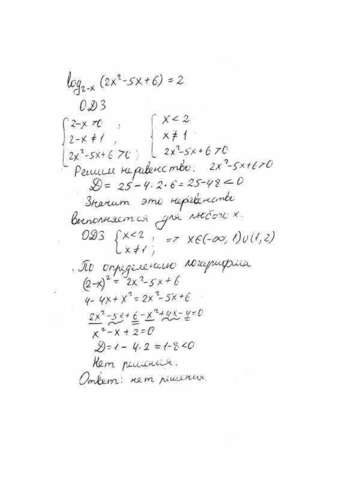 log₂₋ₓ (2x²-5x+6) = 2
ОДЗ
{ 2-x >0 ; { x < 2
2-x ≠ 1 ; x ≠ 1
2x²-5x+6 >0 ; 2x²-5x+6 >0
Решим неравенство: 2x²-5x+6>0
D = 25-4·2·6 = 25-48 <0
Значит это неравенство
выполняется для любого x.
ОДЗ { x<2 ; x≠1 ; => x∈(-∞, 1)∪(1, 2)
По определению логарифма
(2-x)² = 2x²-5x+6
4-4x+x² = 2x²-5x+6
2x²-5x+6-x²+4x-4=0
x²-x+2=0
D=1-4·2=1-8<0
Нет решения.
Ответ: нет решения